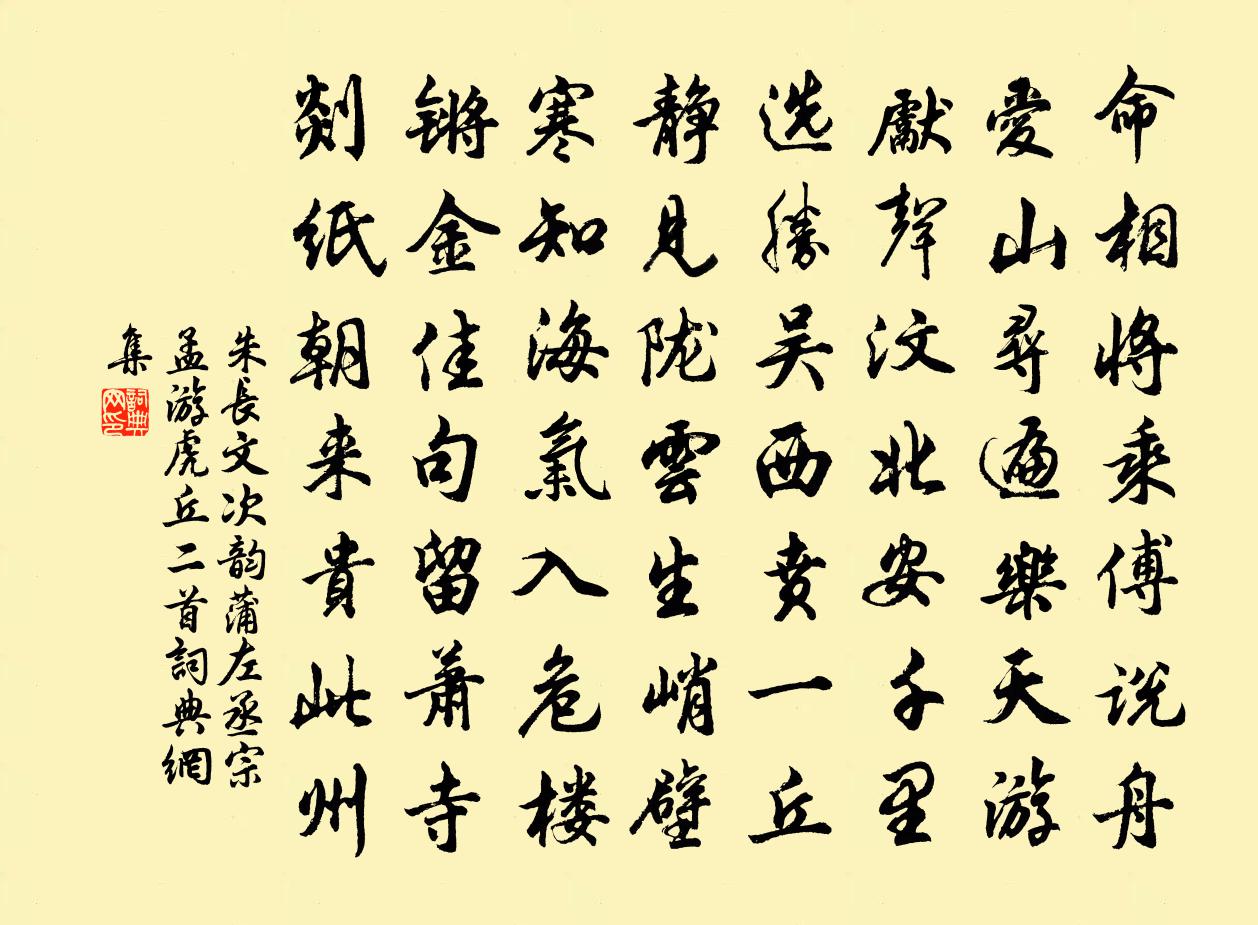 命相将乘傅说舟
愛山尋遍樂天游
獻聲汶北安千里
选勝吴西賁一丘
静見陇雲生峭壁
寒知海氣入危楼
锵金佳句留萧寺
剡纸朝来貴此州
朱長文次韵蒲左丞宗
孟游虎丘二首詞典網
集
詞典网印